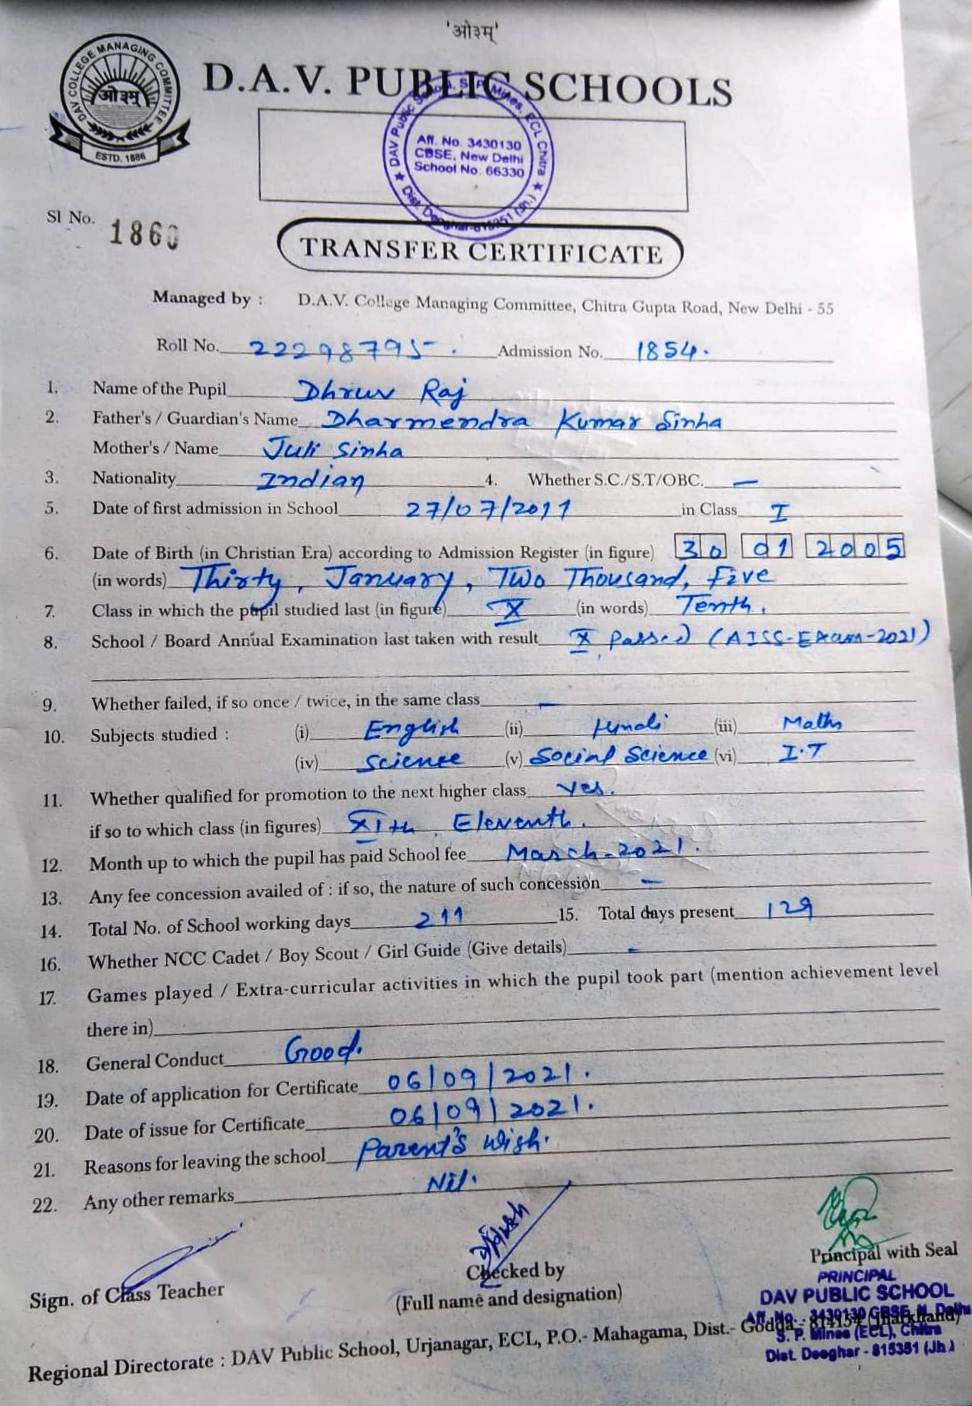 'ओ३म्'
DAV COLLEGE MANAGING COMMITTEE
ओ३म्
ESTD. 1886
D.A.V. PUBLIC SCHOOLS
DAV Public School, S.P. Mines, ECL Chitra
Aff. No. 3430130
CBSE, New Delhi
School No. 66330
Dist. Deoghar-815351 (Jh.)
Sl No. 1860
TRANSFER CERTIFICATE
Managed by : D.A.V. College Managing Committee, Chitra Gupta Road, New Delhi - 55
Roll No. 22298795. Admission No. 1854.
1. Name of the Pupil Dhruv Raj
2. Father's / Guardian's Name Dharmendra Kumar Sinha
Mother's / Name Juli Sinha
3. Nationality Indian 4. Whether S.C./S.T/OBC. —
5. Date of first admission in School 27/07/2011 in Class I
6. Date of Birth (in Christian Era) according to Admission Register (in figure) 30 01 2005
(in words) Thirty, January, Two Thousand, Five
7. Class in which the pupil studied last (in figure) X (in words) Tenth.
8. School / Board Annual Examination last taken with result X Passed (AISS-EXAM-2021)
9. Whether failed, if so once / twice, in the same class —
10. Subjects studied : (i) English (ii) Hindi (iii) Maths
(iv) Science (v) Social Science (vi) I.T
11. Whether qualified for promotion to the next higher class Yes.
if so to which class (in figures) XIth, Eleventh.
12. Month up to which the pupil has paid School fee March-2021.
13. Any fee concession availed of : if so, the nature of such concession —
14. Total No. of School working days 211 15. Total days present 129
16. Whether NCC Cadet / Boy Scout / Girl Guide (Give details) -
17. Games played / Extra-curricular activities in which the pupil took part (mention achievement level
there in)
18. General Conduct Good.
19. Date of application for Certificate 06/09/2021.
20. Date of issue for Certificate 06/09/2021.
21. Reasons for leaving the school Parent's wish.
22. Any other remarks Nil.
Sign. of Class Teacher
Checked by
(Full name and designation)
Principal with Seal
PRINCIPAL
DAV PUBLIC SCHOOL
Aff. No.- 3430130 CBSE, N. Delhi
S. P. Mines (ECL), Chitra
Dist. Deoghar - 815351 (Jh.)
Regional Directorate : DAV Public School, Urjanagar, ECL, P.O.- Mahagama, Dist.- Godda - 814154 (Jharkhand)